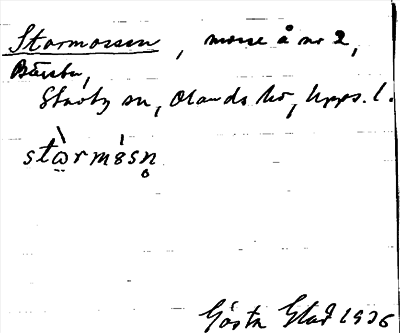 Stormossen, mosse å nr 2,
Bärsta,
Stavby sn, Olands hd, Upps. l.
stὼrmosn̥
Gösta Stad 1936